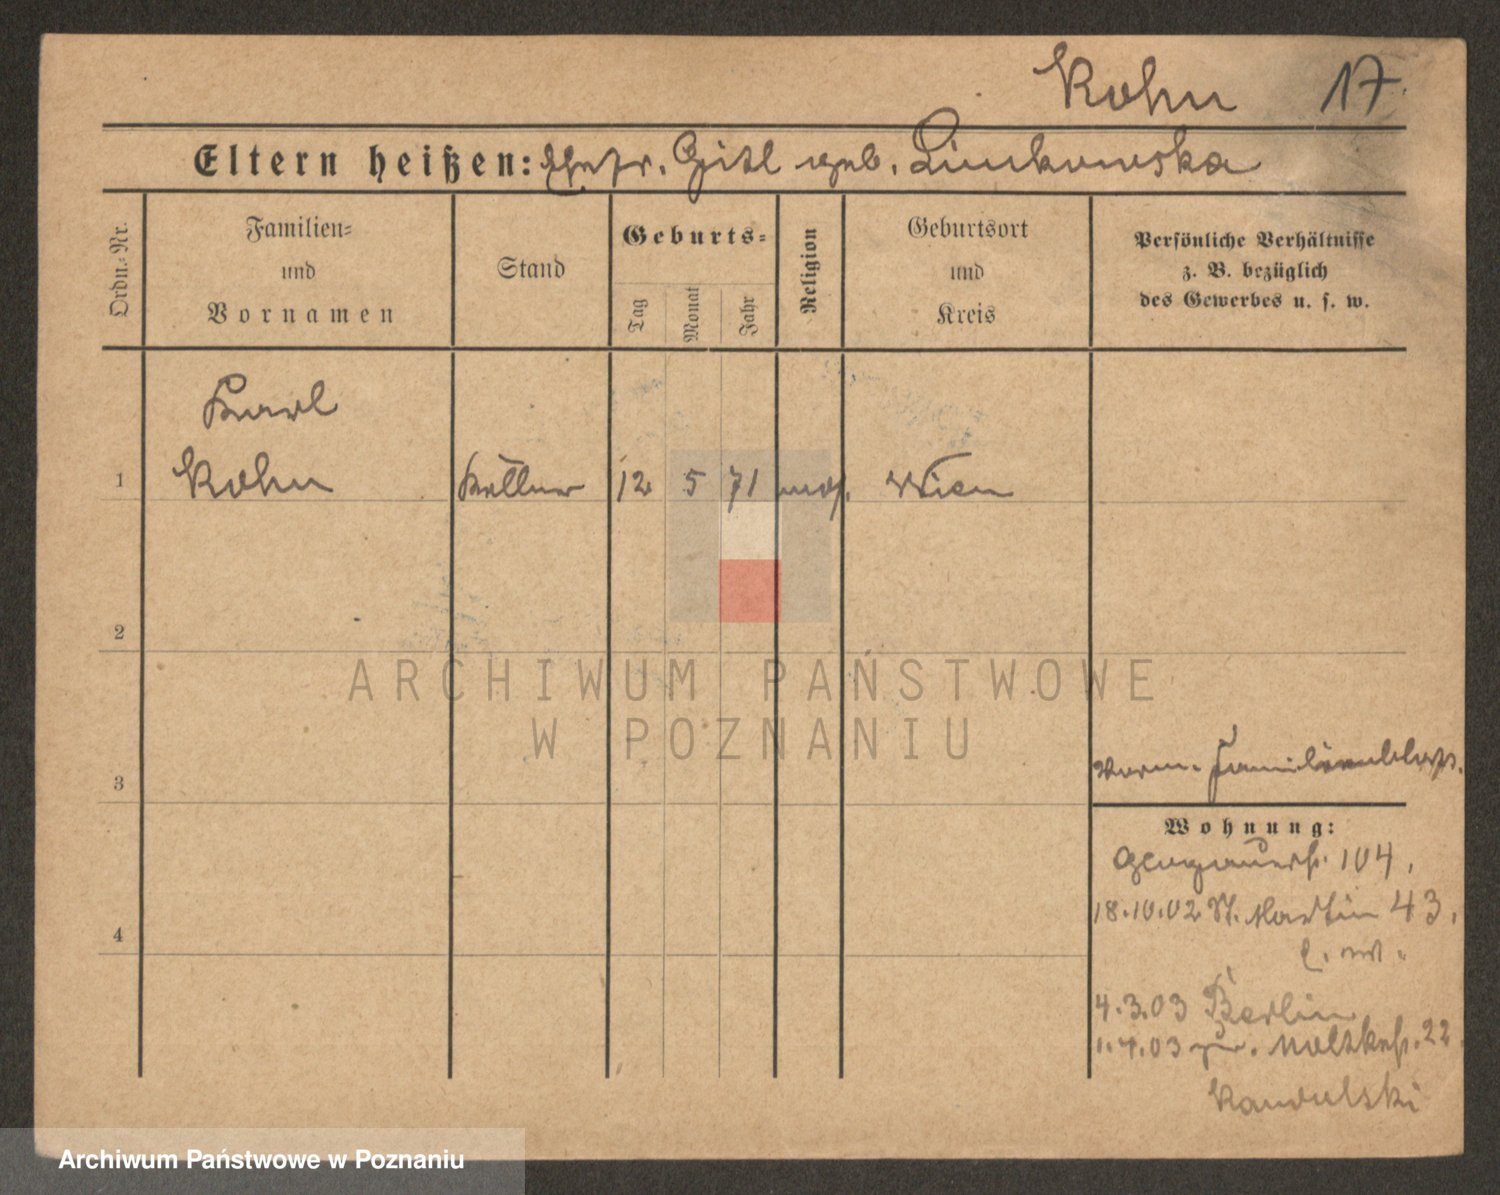 Kohn 17.
Eltern heißen: Ehefr. Gitl geb. Limkowska
Ordn.-Nr.
Familien-
und
Vornamen
Stand
Geburts-
Tag
Monat
Jahr
Religion
Geburtsort
und
Kreis
Persönliche Verhältnisse
z. B. bezüglich
des Gewerbes u. s. w.
Karl
1 Kohn Kellner 12 5 71 mos. Wien
2
3
4
Familienblatt.
Wohnung:
Glogauerstr. 104.
18.10.02 St. Martin 43.
4.3.03 Berlin
1.4.03 Moltkestr. 22.
ARCHIWUM PAŃSTWOWE
W POZNANIU
Archiwum Państwowe w Poznaniu